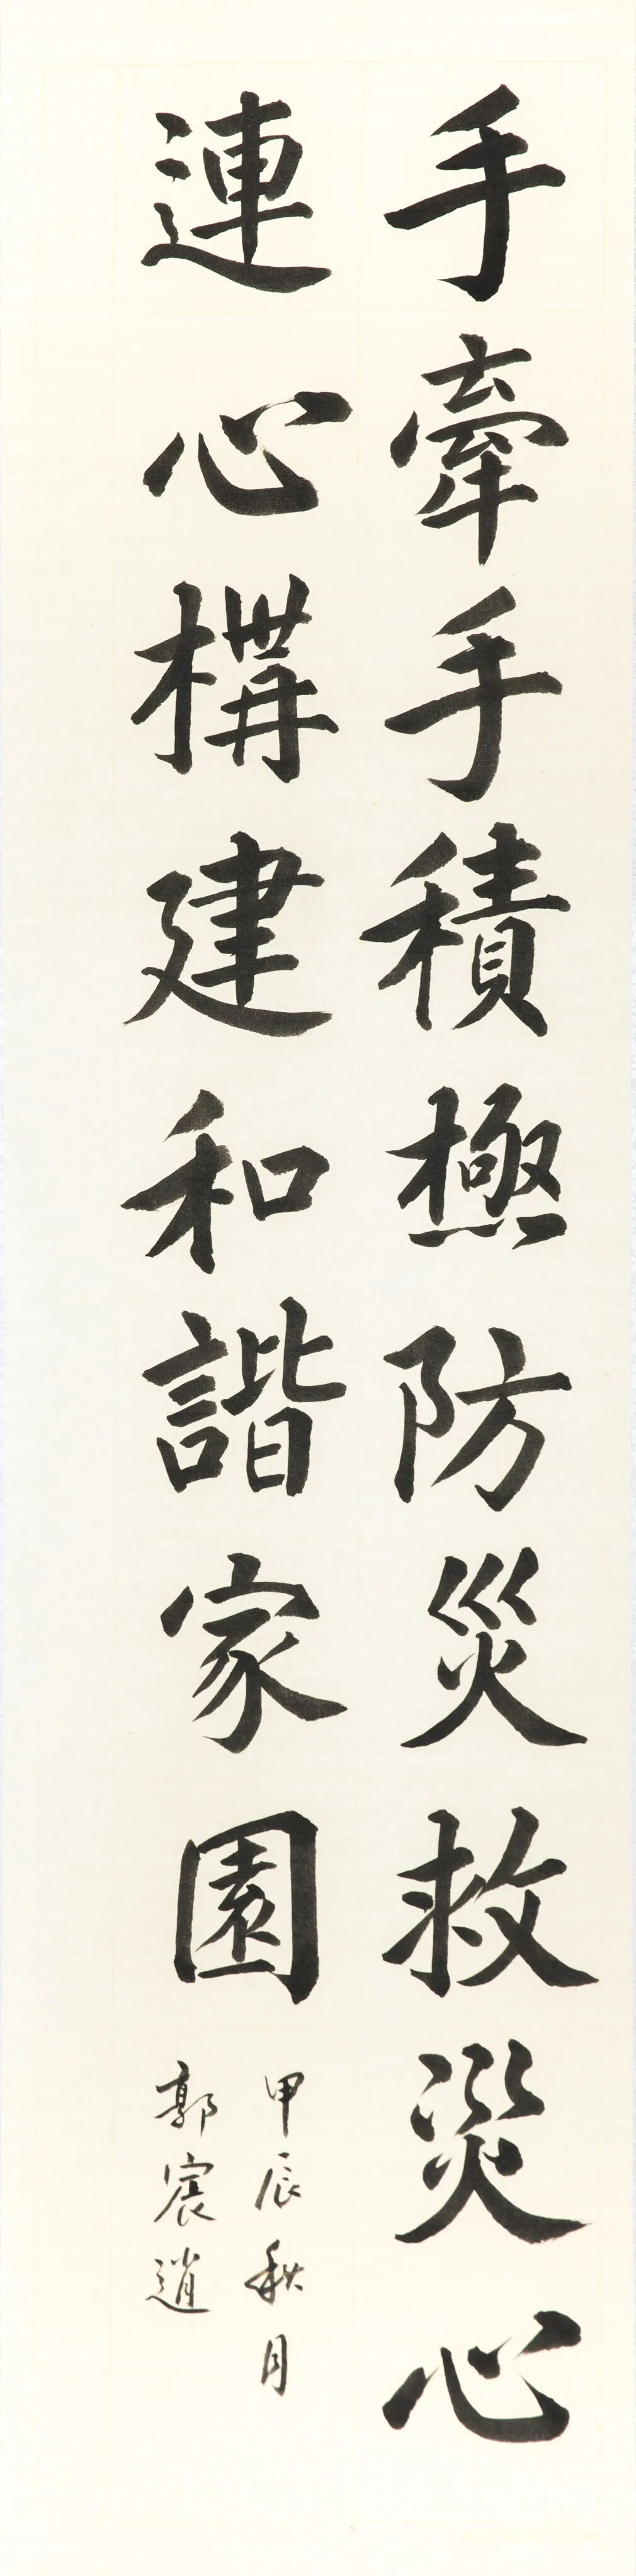 手牽手積極防災救災心
連心構建和諧家園
甲辰秋月
郭宸逍